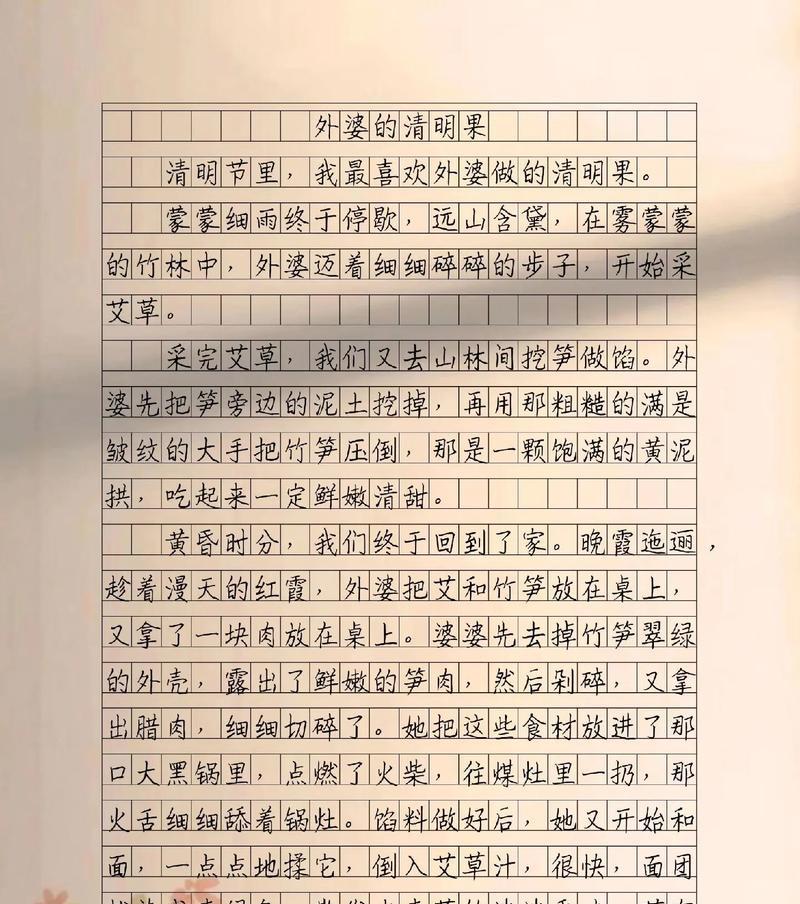 外婆的清明果
清明节里，我最喜欢外婆做的清明果。
蒙蒙细雨终于停歇，远山含黛，在雾蒙蒙
的竹林中，外婆迈着细细碎碎的步子，开始采
艾草。
采完艾草，我们又去山林间挖笋做馅。外
婆先把笋旁边的泥土挖掉，再用那粗糙的满是
皱纹的大手把竹笋压倒，那是一颗饱满的黄泥
拱，吃起来一定鲜嫩清甜。
黄昏时分，我们终于回到了家。晚霞迤逦，
趁着漫天的红霞，外婆把艾和竹笋放在桌上，
又拿了一块肉放在桌上。婆婆先去掉竹笋翠绿
的外壳，露出了鲜嫩的笋肉，然后剁碎，又拿
出腊肉，细细切碎了。她把这些食材放进了那
口大黑锅里，点燃了火柴，往煤灶里一扔，那
火舌细细舔着锅灶。馅料做好后，她又开始和
面，一点点地揉它，倒入艾草汁，很快，面团